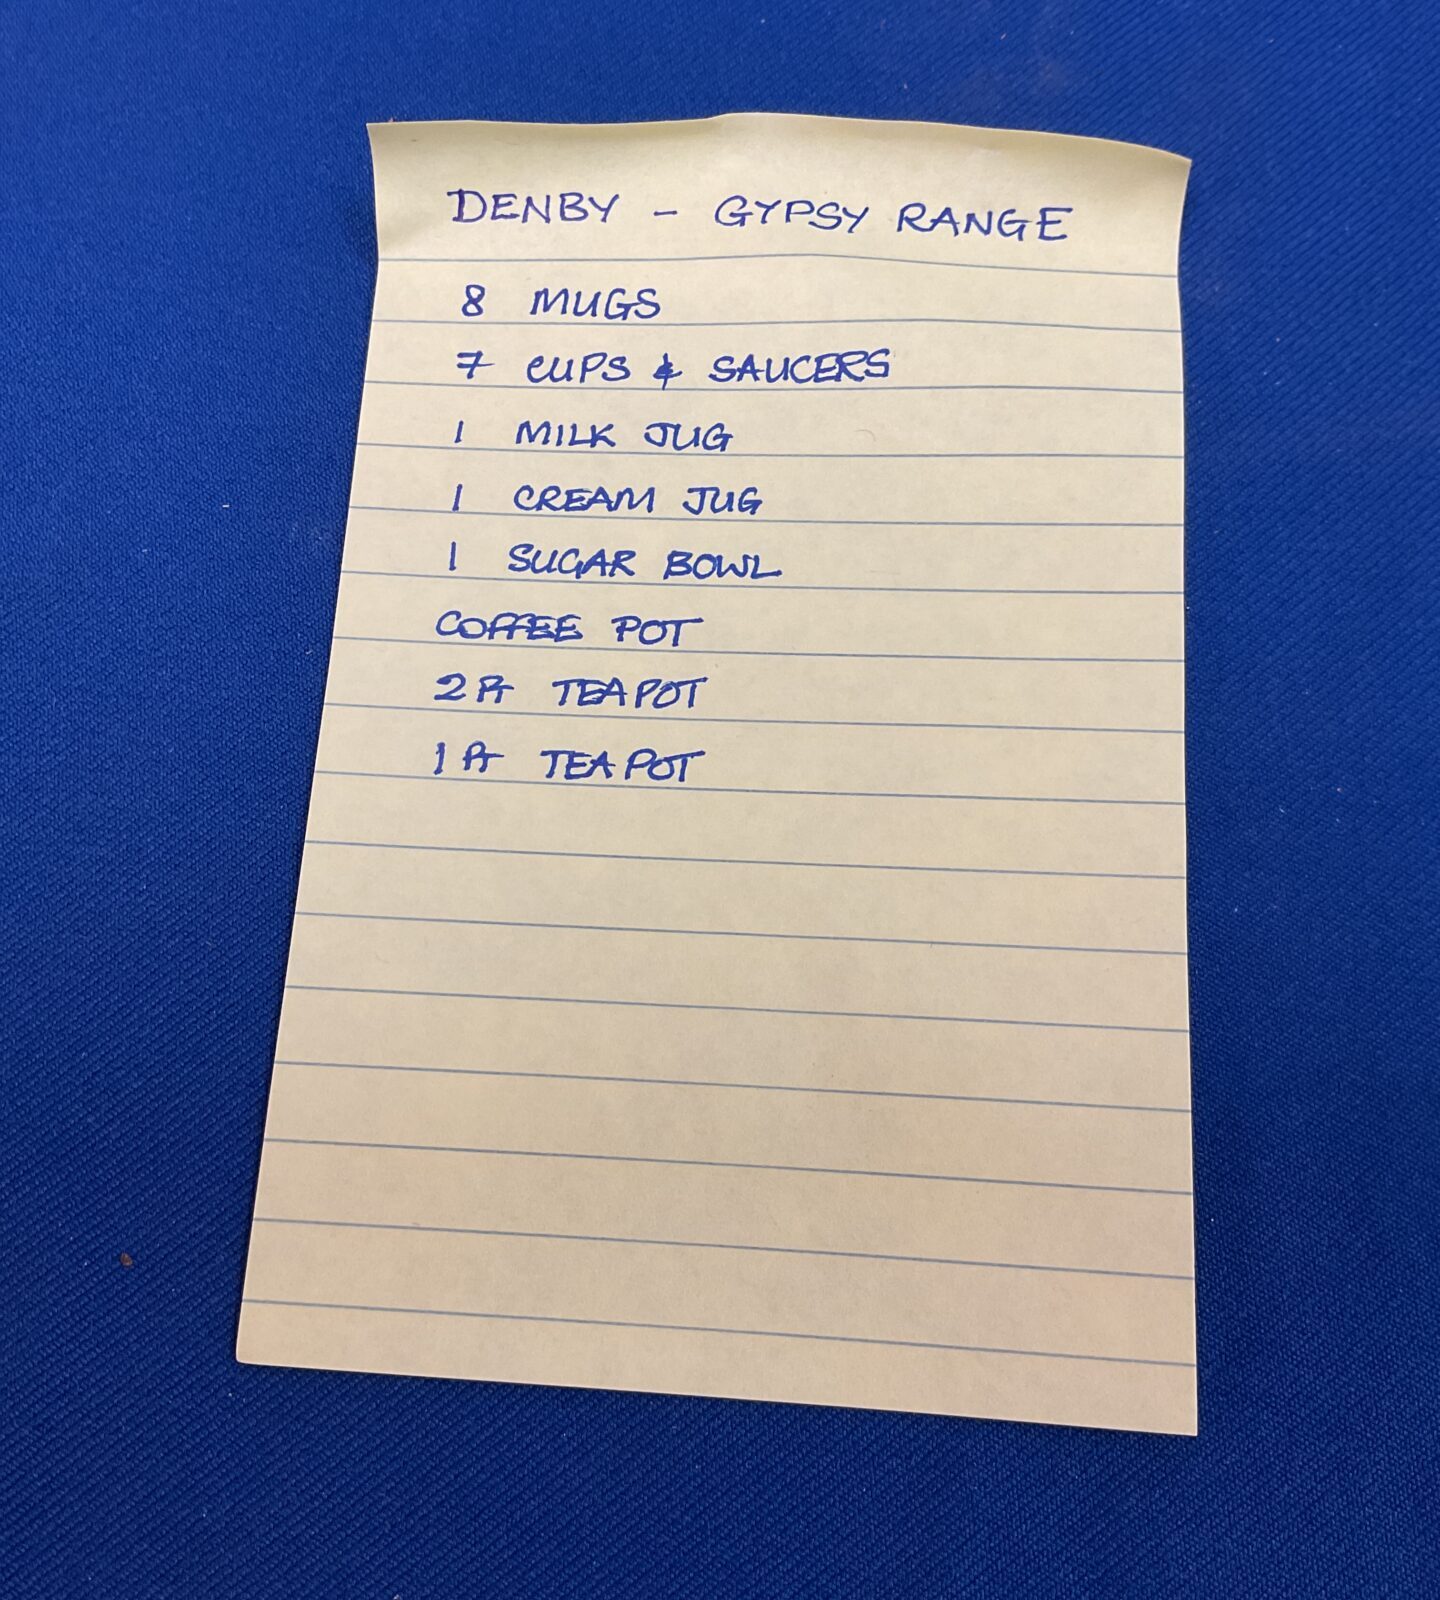 DENBY - GYPSY RANGE
8 MUGS
7 CUPS & SAUCERS
1 MILK JUG
1 CREAM JUG
1 SUGAR BOWL
COFFEE POT
2 PT TEAPOT
1 PT TEAPOT